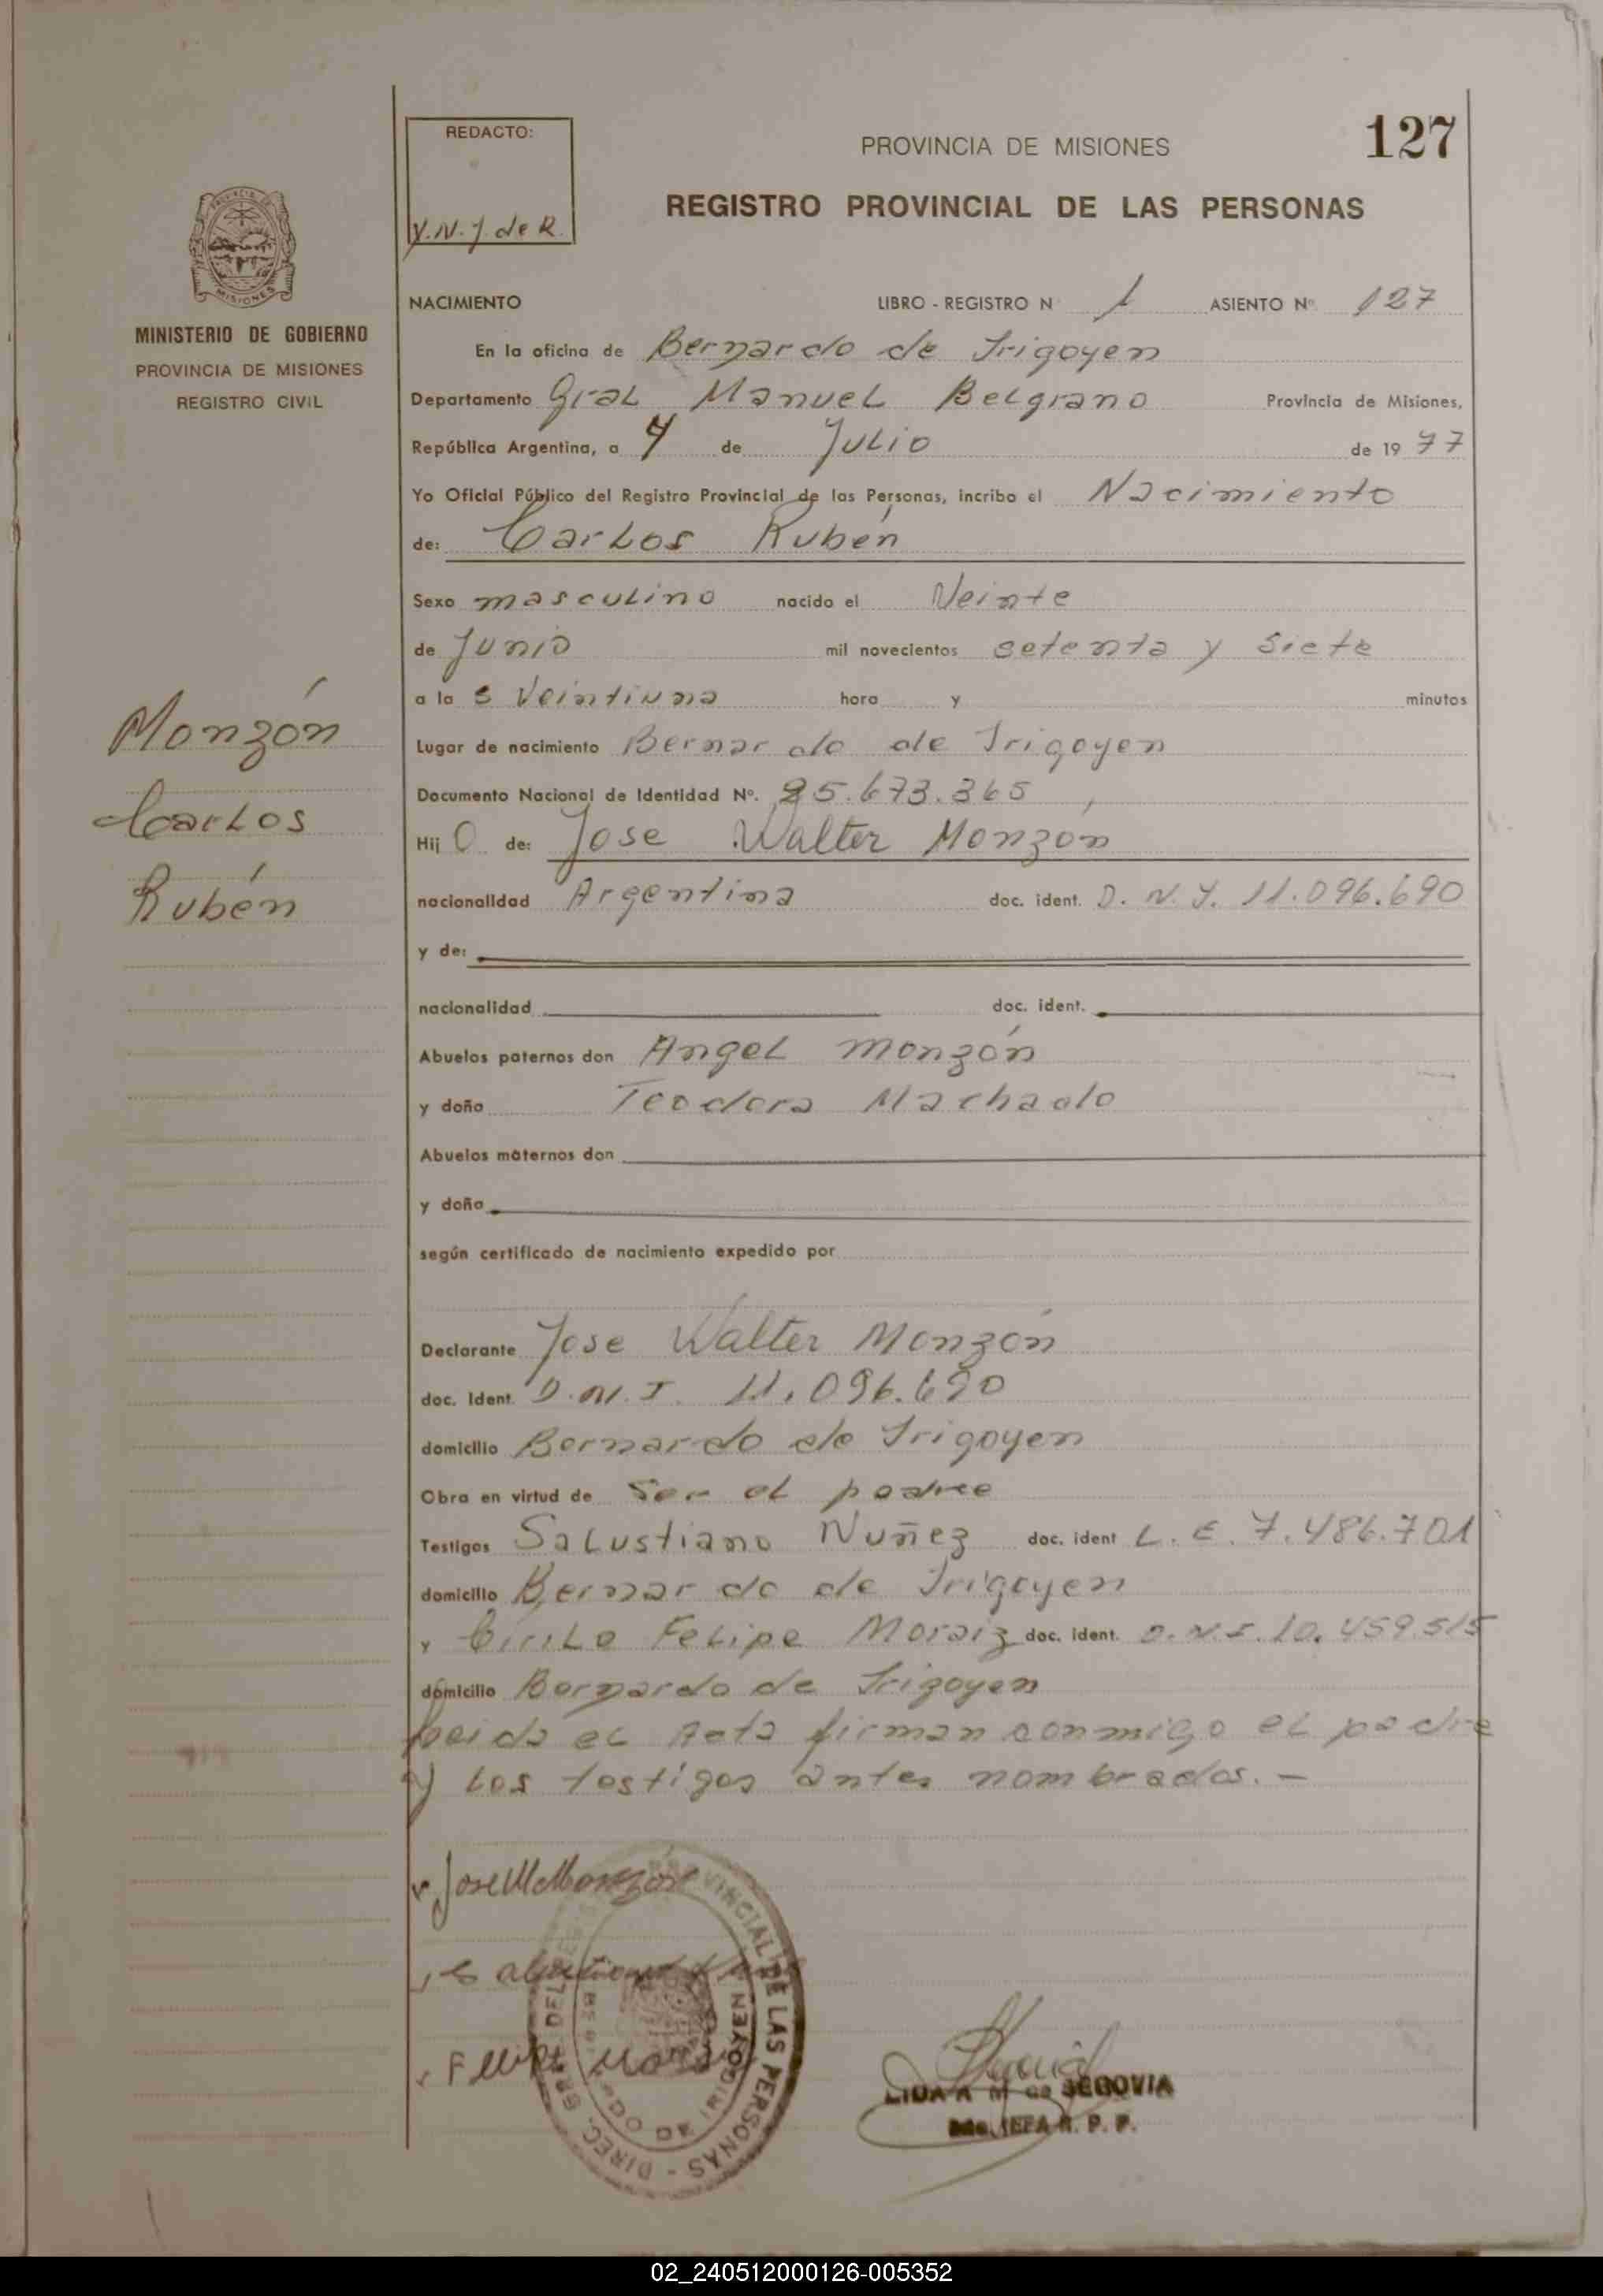 REDACTO:
Y.N.J. de R.
PROVINCIA DE MISIONES
127
REGISTRO PROVINCIAL DE LAS PERSONAS
MISIONES
MINISTERIO DE GOBIERNO
PROVINCIA DE MISIONES
REGISTRO CIVIL
NACIMIENTO LIBRO - REGISTRO N 1 ASIENTO Nº 127
En la oficina de Bernardo de Irigoyen
Departamento Gral Manuel Belgrano Provincia de Misiones,
República Argentina, a 4 de Julio de 1977
Yo Oficial Público del Registro Provincial de las Personas, incribo el Nacimiento
de: Carlos Rubén
Sexo masculino nacido el Veinte
de Junio mil novecientos setenta y siete
a la s Veintiuna hora y minutos
Lugar de nacimiento Bernardo de Irigoyen
Documento Nacional de Identidad Nº. 25.673.365
Hij o de: Jose Walter Monzón
nacionalidad Argentina doc. ident. D.N.I. 11.096.690
y de:
nacionalidad doc. ident.
Abuelos paternos don Angel Monzón
y doña Teodora Machado
Abuelos maternos don
y doña
según certificado de nacimiento expedido por
Declarante Jose Walter Monzón
doc. Ident. D.N.I. 11.096.690
domicilio Bernardo de Irigoyen
Obra en virtud de Ser el padre
Testigos Salustiano Nuñez doc. ident L.E. 7.486.701
domicilio Bernardo de Irigoyen
y Cirilo Felipe Moraiz doc. ident. D.N.I. 10.459.515
domicilio Bernardo de Irigoyen
Leida el Acta firman conmigo el padre
y los testigos antes nombrados. -
Monzón
Carlos
Rubén
Jose W Monzon
Felipe
DIREC. GRAL. DEL VINCIAL DE LAS PERSONAS
DO DE IRIGOYEN
LIDA A M de SEGOVIA
JEFA R. P. P.
02_240512000126-005352